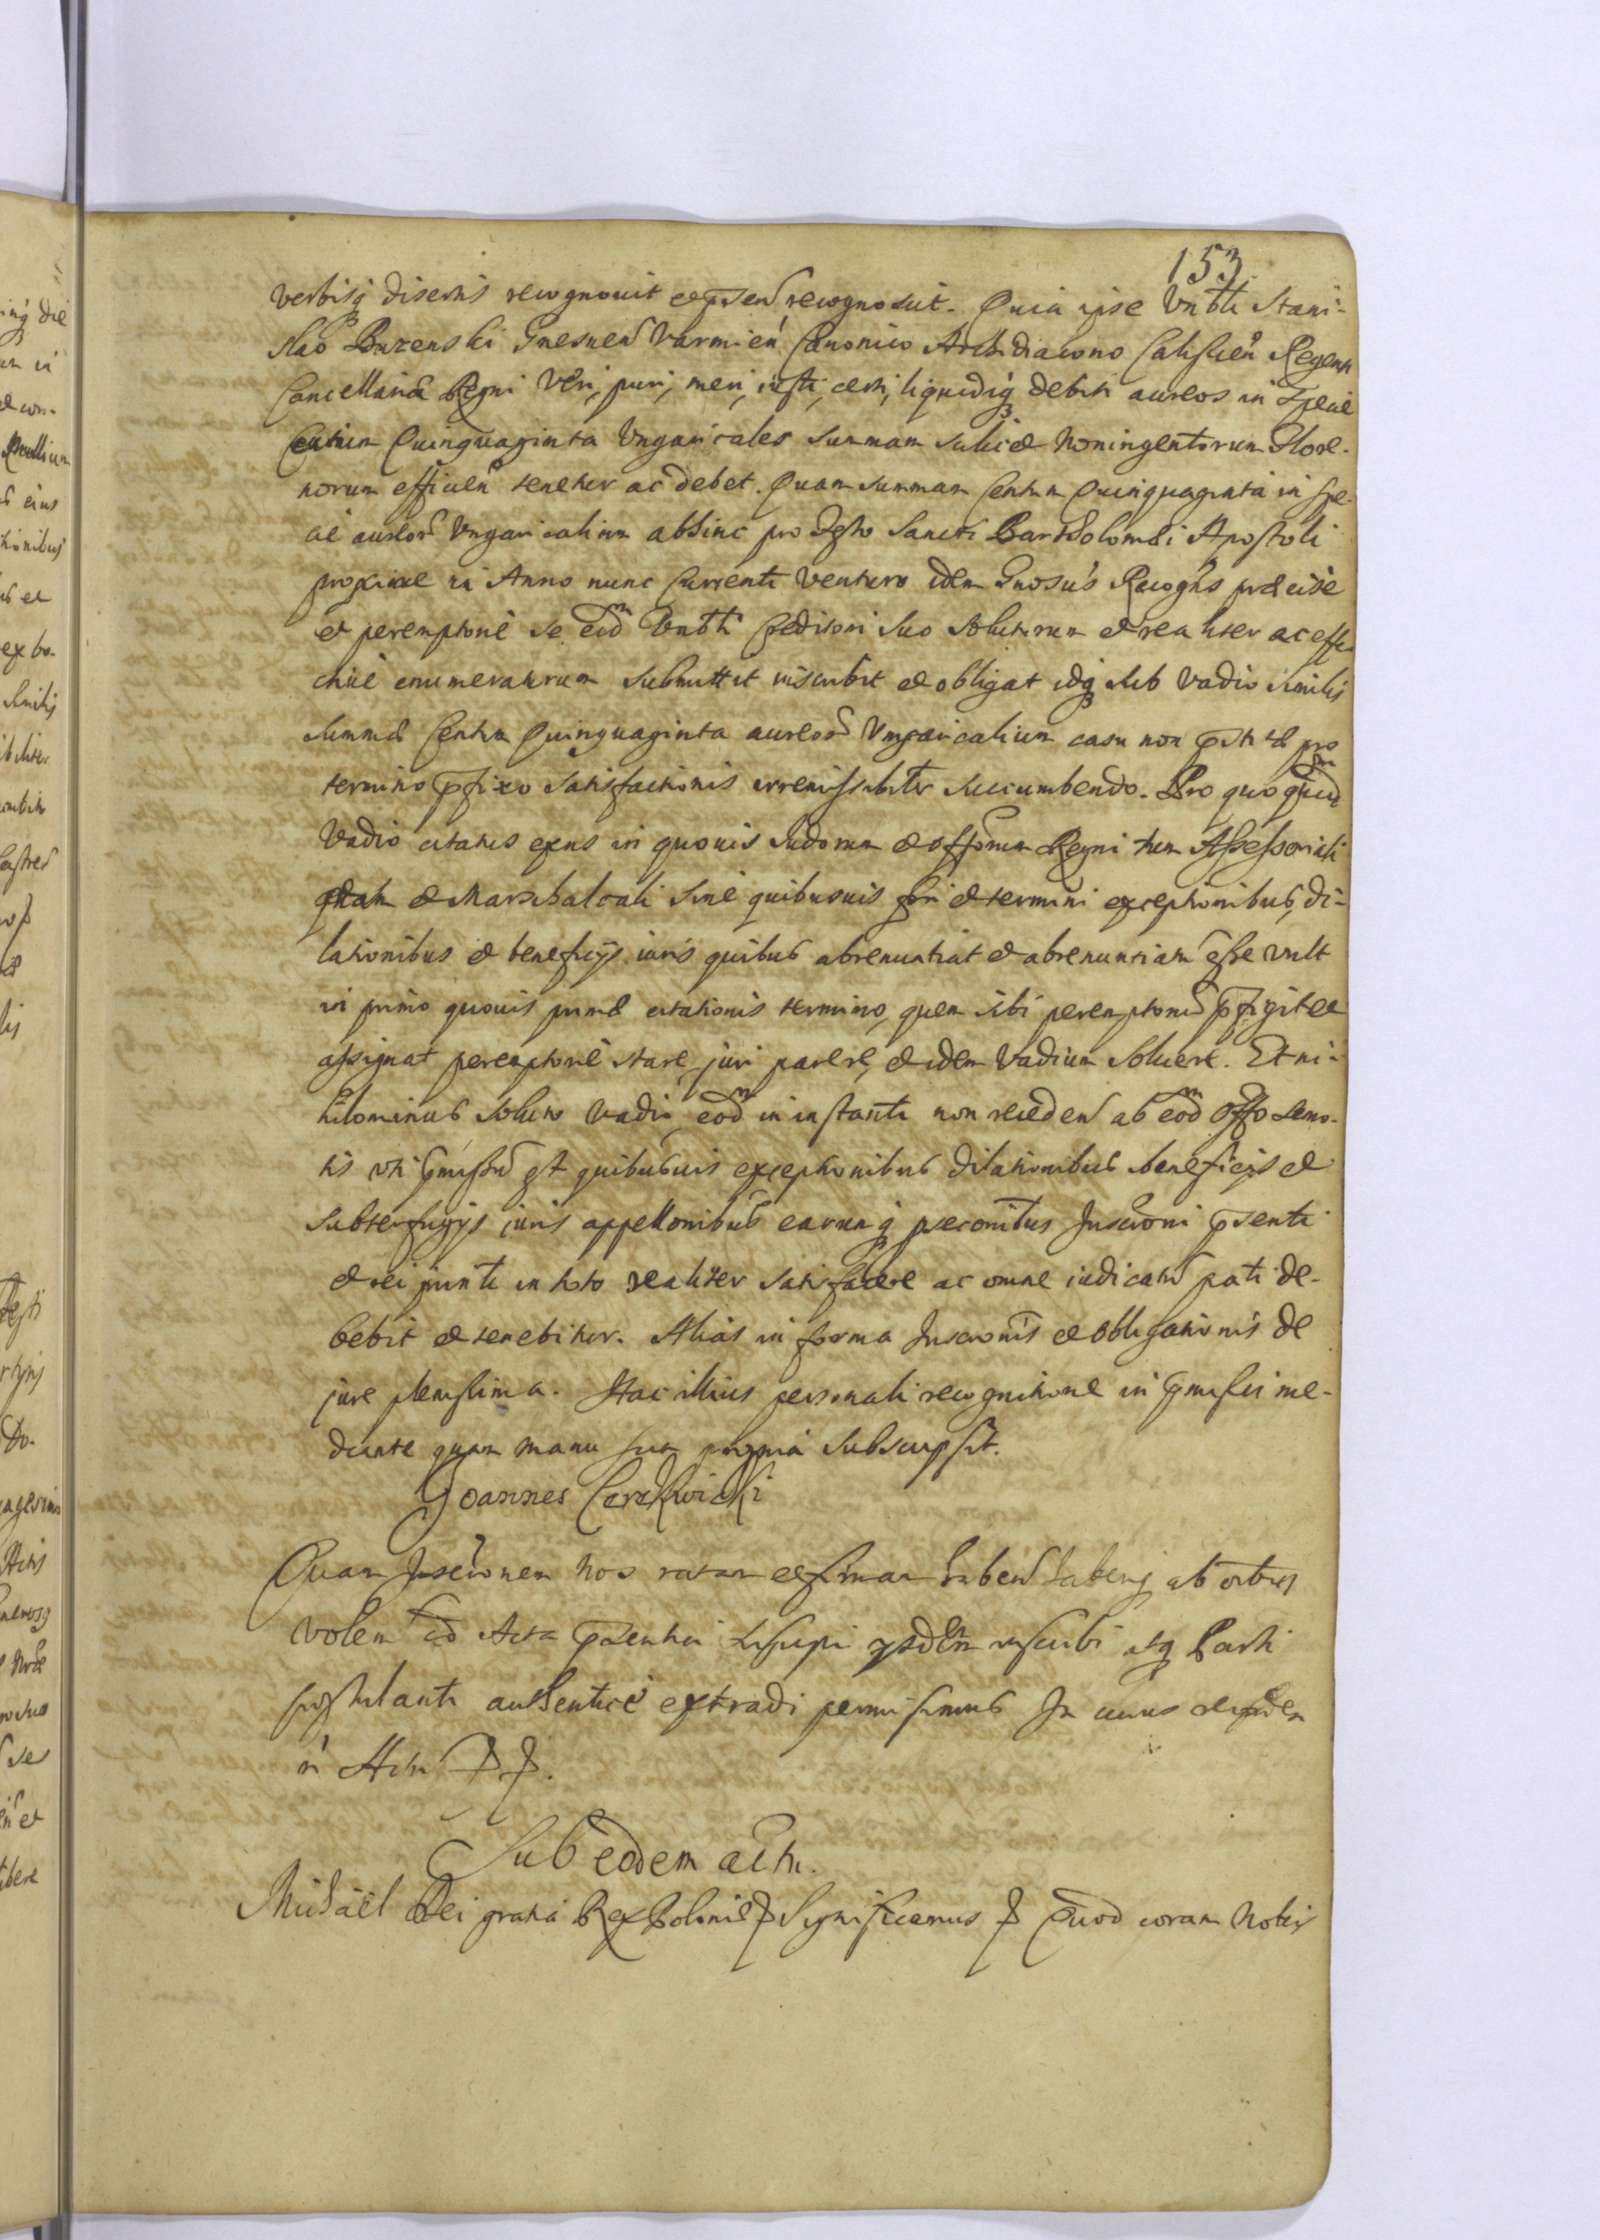 153
verbisq disertis recognouit et pnsen recognoscit. Quia ipse Vnbli Stani-
slao Buzenski Gnesnen Varmien Canonico Archidiacono Calissien Regenti
Cancellariæ Regni Veri, puri, meri, iusti, certi, liquidiq debiti aureos in Specie
Centum Quinquaginta Vngaricales summam scilicet Noningentorum Flore-
norum efficien tenetur ac debet. Quam summam Centum Quinquaginta in spe-
cie aureor Vngaricalium abhinc pro Festo Sancti Bartholomæi Apostoli
proxime in Anno nunc Currenti venturo idem Gnosus Recogns præcise
et peremptorie se eidm Vnbli Creditori suo soluturum et realiter ac effe-
ctiue enumeraturum submittit inscribit et obligat idq sub Vadio similis
summæ Centum Quinquaginta aureor Vngaricalium casu non pstitæ pro
termino pfixo satisfactionis irremissibiliter succumbendo. Pro quo quidm
Vadio citatus extus in quouis Iudorum et offorum Regni tum Assessoriali
et Marschalcali sine quibusuis fori et termini exceptionibus, di-
lationibus et beneficijs iuris quibus abrenuntiat et abrenuntiatu esse vult
in primo quouis primæ citationis termino, quem sibi peremptoriu pfigit et
assignat peremptorie stare, juri parere, et idem Vadium soluere. Et ni-
hilominus soluto Vadio, eodm in instanti non receden ab eodm Offo remo-
tis vti pmissu est quibusuis exceptionibus dilationibus beneficijs et
subterfugijs juris appellonibus earumq Inscroni psenti
et rei in toto realiter satisfacere ac omne iudicatu pati de-
bebit et tenebitur. Alias in forma Inscronis et obligationis de
jure plenissima. Hac illius personali recognitione in pmissis me-
diante quam manu sua propria subscripsit.
Joannes Cerekwicki
Quam Inscronem nos ratam et firmam haben haberiq ab omnibus
volen eid Acta inscribi atq Parti
postulanti authentice extradi permisimus In cuius rei fidem
Sub eodem actu.
Michaël Dei gratia Rex Poloniæ Significamus Quod coram Nobis